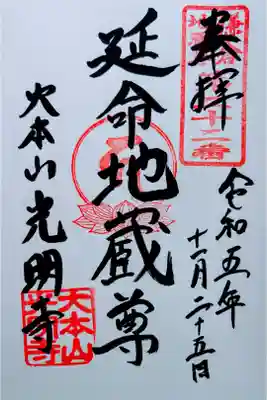 奉拝
令和五年
十一月二十五日
延命地蔵尊
大本山光明寺
大本山
光明寺